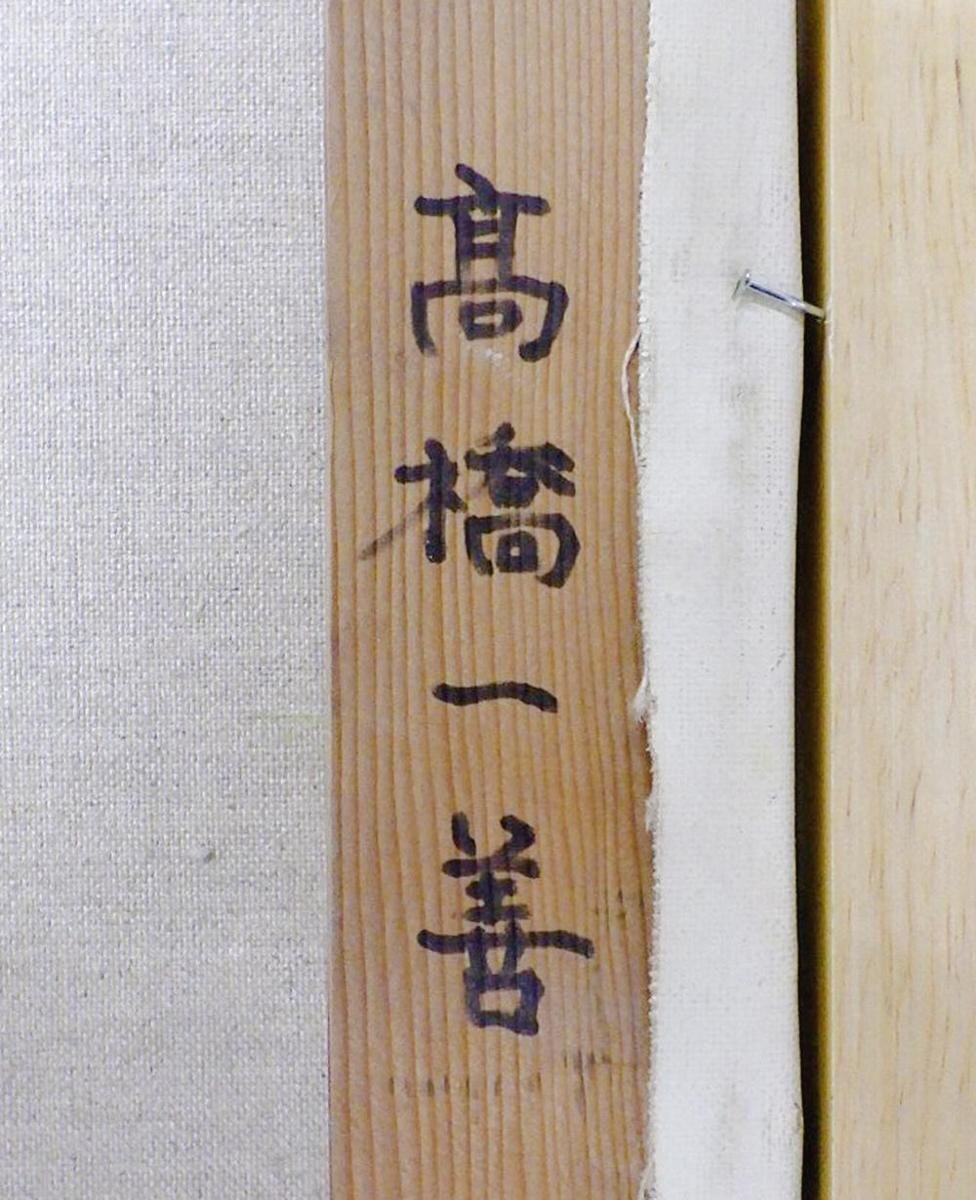 髙橋一善